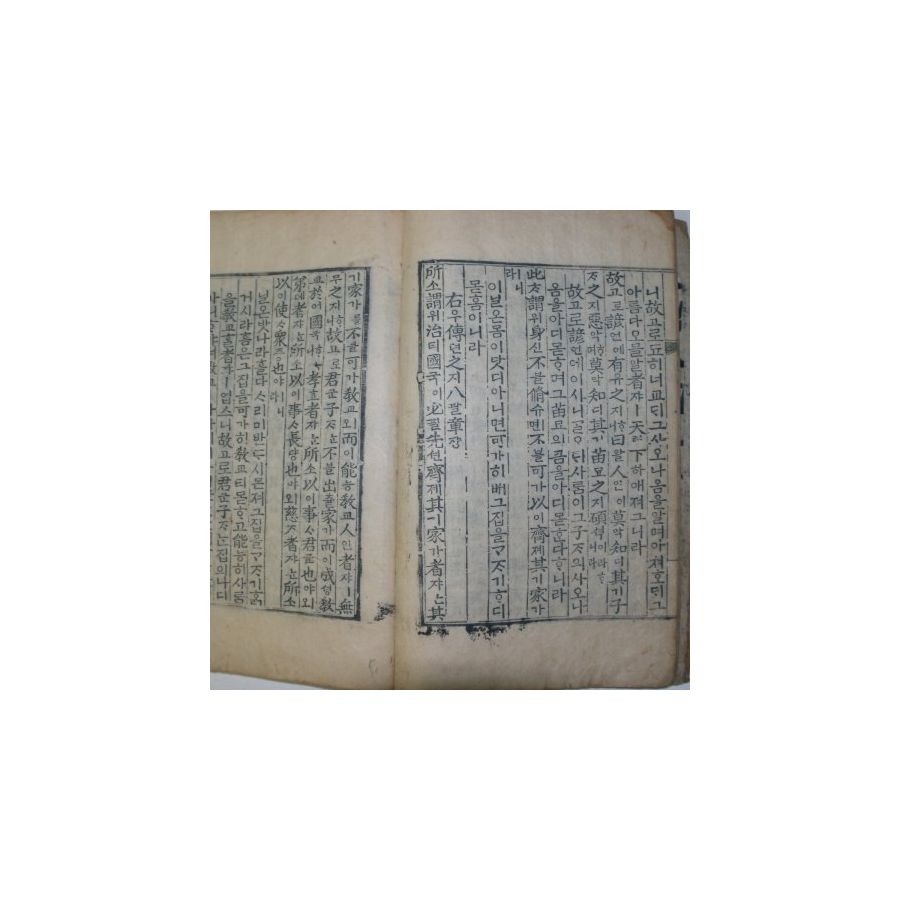 니故고로됴히너교ᄃᆡ그사오나옴을알며아쳐호ᄃᆡ그
아름다옴을알者쟈ㅣ天텬下하애져그니라
故고로諺언에有유之지ᄒᆞ니曰왈人인이莫막知디其기子
ᄌᆞ之지惡악ᄒᆞ며莫막知디其기苗묘之지碩셕이라ᄒᆞ니라
故고로諺언에이시니ᄀᆞᆯ오ᄃᆡ사ᄅᆞᆷ이그子ᄌᆞ의사오나
옴을아디몯ᄒᆞ며그苗묘의큼을아디몯ᄒᆞᆫ다ᄒᆞ니라
此ᄎᆞ謂위身신不블脩슈ㅣ면不블可가以이齊졔其기家가
ㅣ니라
이닐온몸이닷디아니면可가히ᄡᅥ그집을ᄀᆞᄌᆞ기ᄒᆞ디
몯홈이니라
右우傳뎐之지八팔章쟝
所소謂위治티國국이必필先션齊졔其기家가者쟈ᄂᆞᆫ其
기家가를不블可가敎교ㅣ오而이能능敎교人인者쟈ㅣ無
무之지ᄒᆞ니故고로君군子ᄌᆞᄂᆞᆫ不블出츌家가而이成셩敎
교於어國국ᄒᆞᄂᆞ니孝효者쟈ᄂᆞᆫ所소以이事ᄉᆞ君군也야ㅣ오
弟뎨者쟈ᄂᆞᆫ所소以이事ᄉᆞ長댱也야ㅣ오慈ᄌᆞ者쟈ᄂᆞᆫ所소
以이使ᄉᆞ衆즁也야ㅣ니라
닐온밧나라흘다ᄉᆞ리미반ᄃᆞ시몬져그집을ᄀᆞᄌᆞ기ᄒᆞᆯ
거시라홈은그집을可가히敎교티몯ᄒᆞ고能능히사ᄅᆞᆷ
을敎교ᄒᆞᆯ者쟈ㅣ업스니故고로君군子ᄌᆞᄂᆞᆫ집의나디